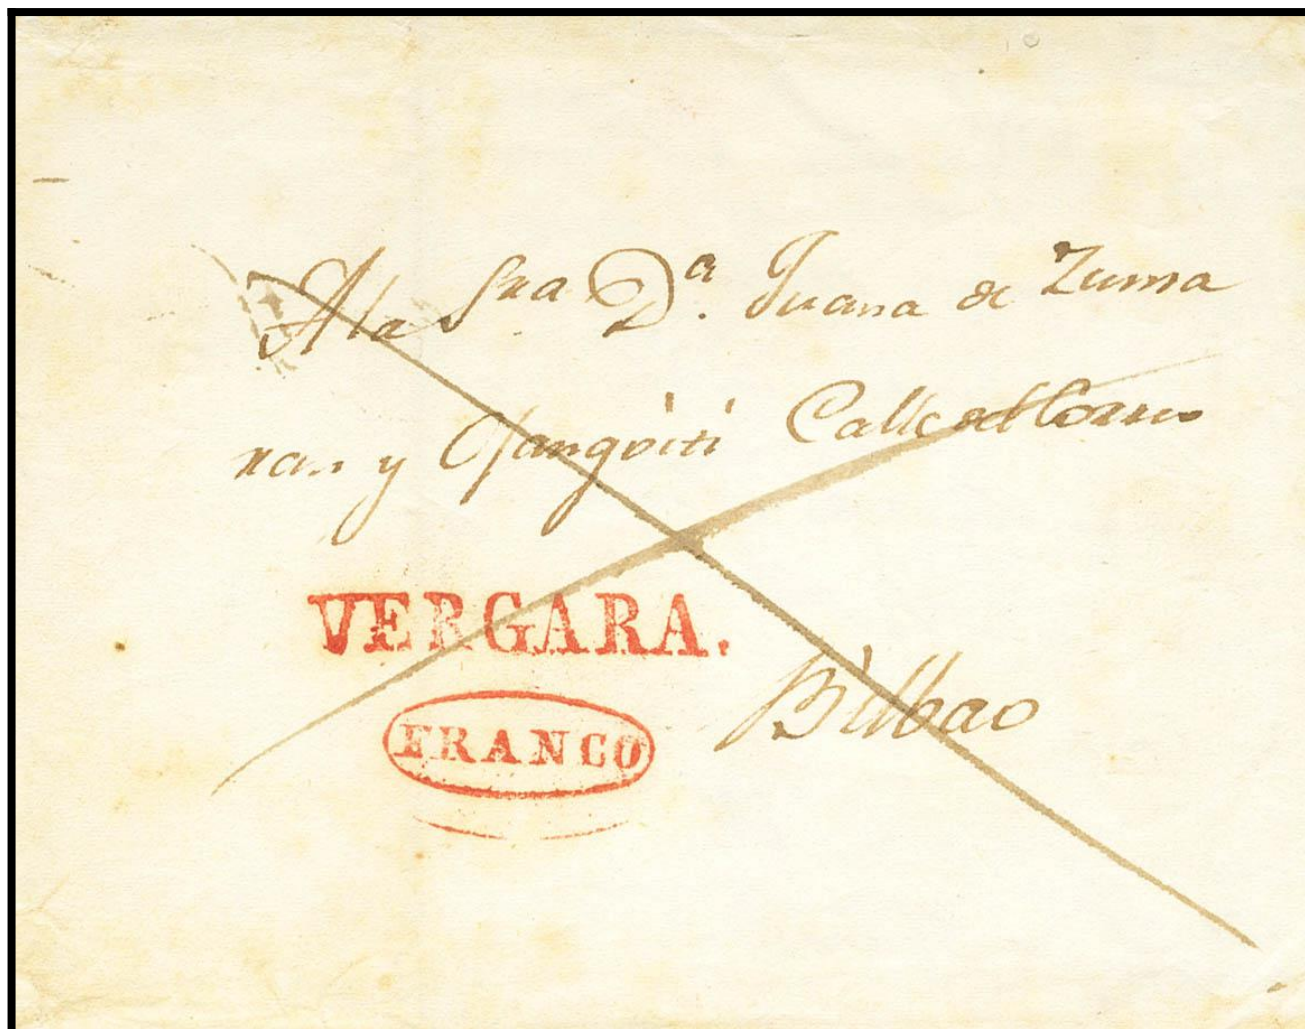 A la Sra D.ª Juana de Zuma
ran y Ojangoiti Calle del Correo
VERGARA.
FRANCO
Bilbao